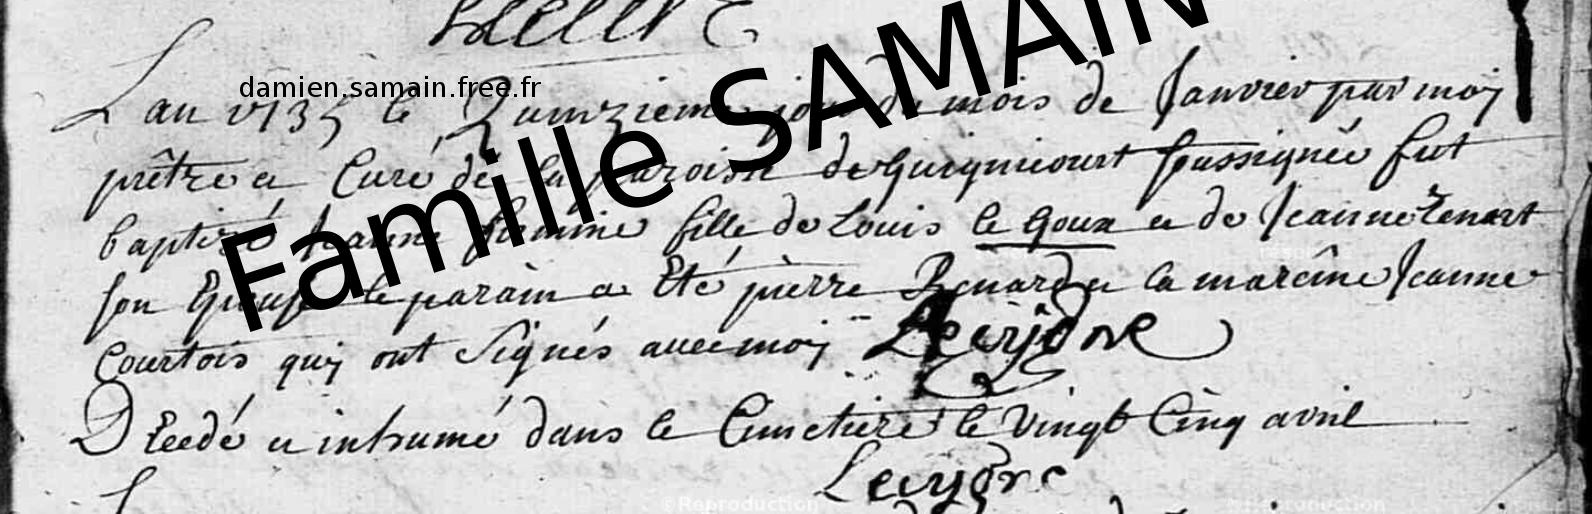 damien.samain.free.fr
Famille SAMAIN
L'an 1735 le Quinzieme jour du mois de Janvier par moy
prêtre et Curé de la paroisse de Guignicourt soussignée fut
baptizé Jeanne firmine fille de Louis le Goux et de Jeanne Renart
son Epouse le parain a Eté pierre Renard et la mareine Jeanne
Courtois quy ont Signés avec moy
Decedé et inhumé dans le Cimetiere le Vingt Cinq avril
©Reproduction